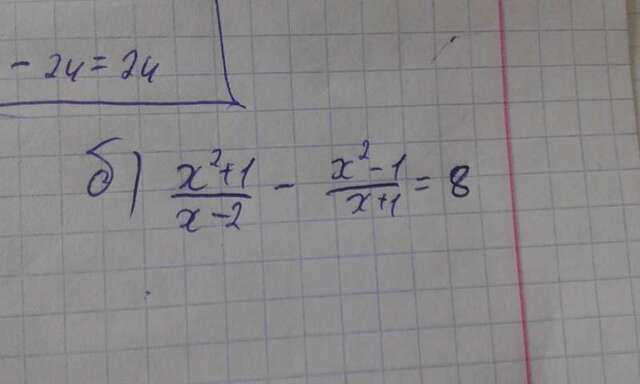 - 24 = 24
б) \frac{x^2+1}{x-2} - \frac{x^2-1}{x+1} = 8